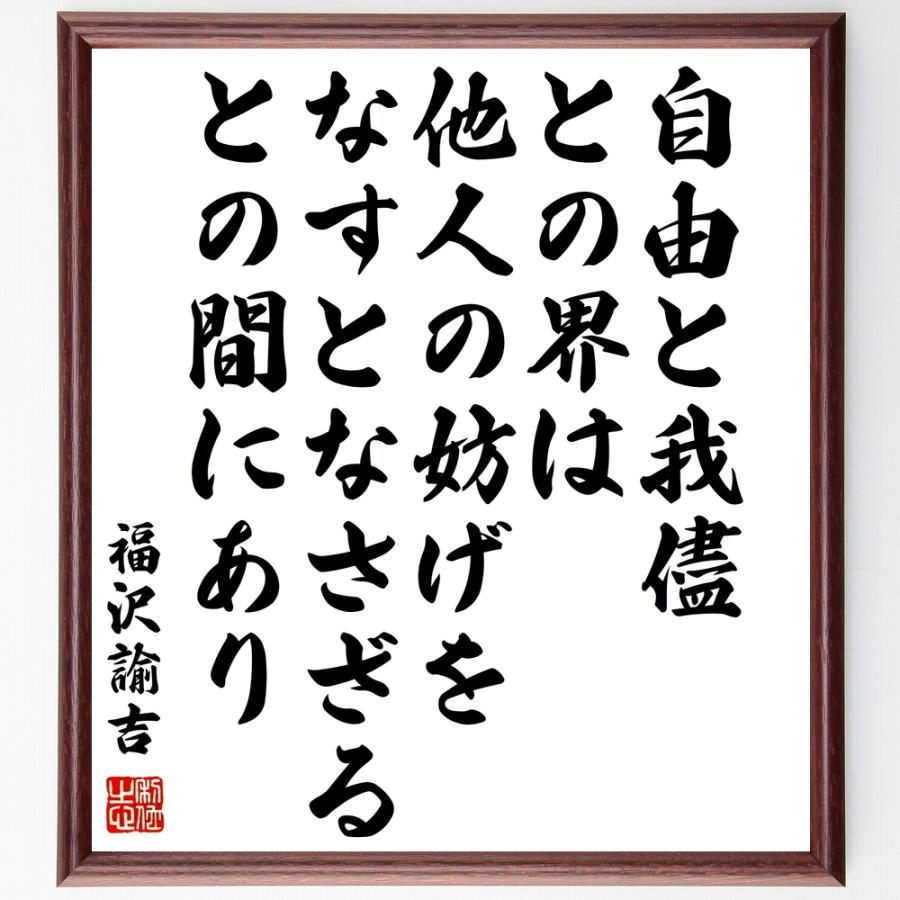 自由と我儘
との界は
他人の妨げを
なすとなさざる
との間にあり
福沢諭吉